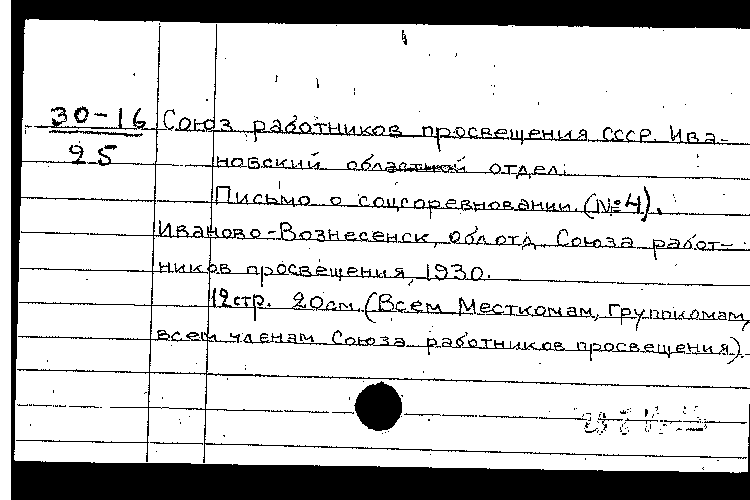 30-16 Союз работников просвещения СССР. Ива-
25 новский областной отдел.
Письмо о соцсоревновании. (№4).
Иваново-Вознесенск, облотд. Союза работ-
ников просвещения, 1930.
12стр. 20см. (Всем Месткомам, Группкомам,
всем членам Союза работников просвещения).